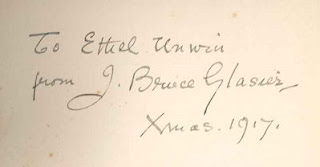 To Ethel Unwin
from J. Bruce Glasier
Xmas. 1917.